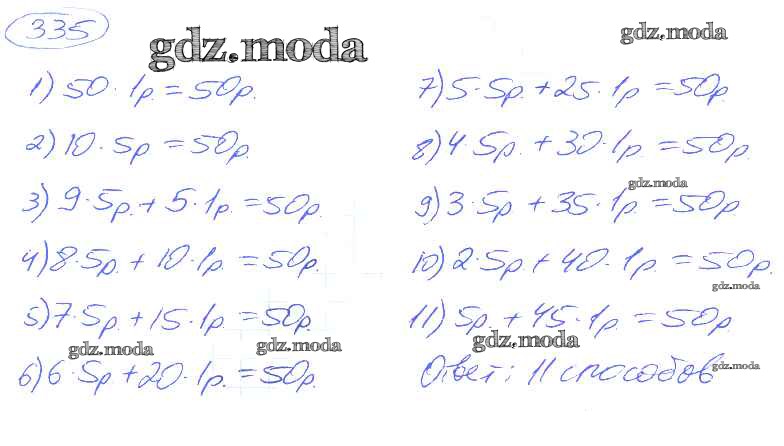 335
gdz.moda
gdz.moda
1) 50 · 1р. = 50р.
2) 10 · 5р = 50р.
3) 9 · 5р. + 5 · 1р. = 50р.
4) 8 · 5р. + 10 · 1р. = 50р.
5) 7 · 5р. + 15 · 1р. = 50р.
gdz.moda
gdz.moda
6) 6 · 5р + 20 · 1р. = 50р.
7) 5 · 5р + 25 · 1р = 50р.
8) 4 · 5р. + 30 · 1р = 50р.
gdz.moda
9) 3 · 5р + 35 · 1р. = 50р
10) 2 · 5р. + 40 · 1р = 50р.
gdz.moda
11) 5р. + 45 · 1р. = 50р.
gdz.moda
Ответ: 11 способов
gdz.moda